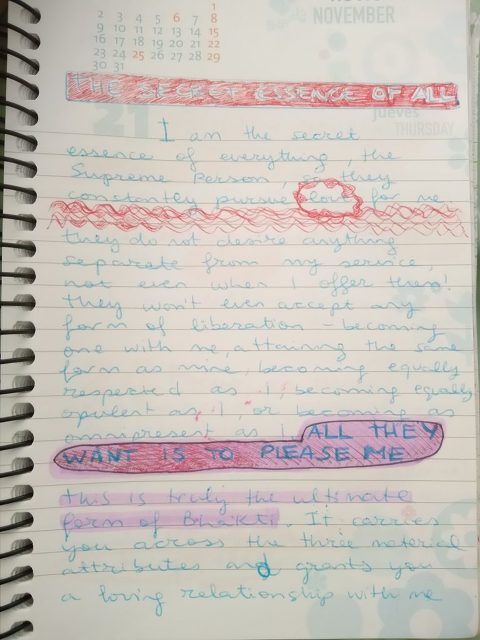 NOVEMBER
1
2 3 4 5 6 7 8
9 10 11 12 13 14 15
16 17 18 19 20 21 22
23 24 25 26 27 28 29
30 31
THE SECRET ESSENCE OF ALL
21
jueves
THURSDAY
I am the secret
essence of everything, the
Supreme Person, so they
constantly pursue love for me.
they do not desire anything
separate from my service,
not even when I offer them!
they won't even accept any
form of liberation - becoming
one with me, attaining the same
form as mine, becoming equally
respected as I, becoming equally
opulent as I, or becoming as
omnipresent as I. ALL THEY
WANT IS TO PLEASE ME
this is truly the ultimate
form of Bhakti. It carries
you across the three material
attributes and grants you
a loving relationship with me